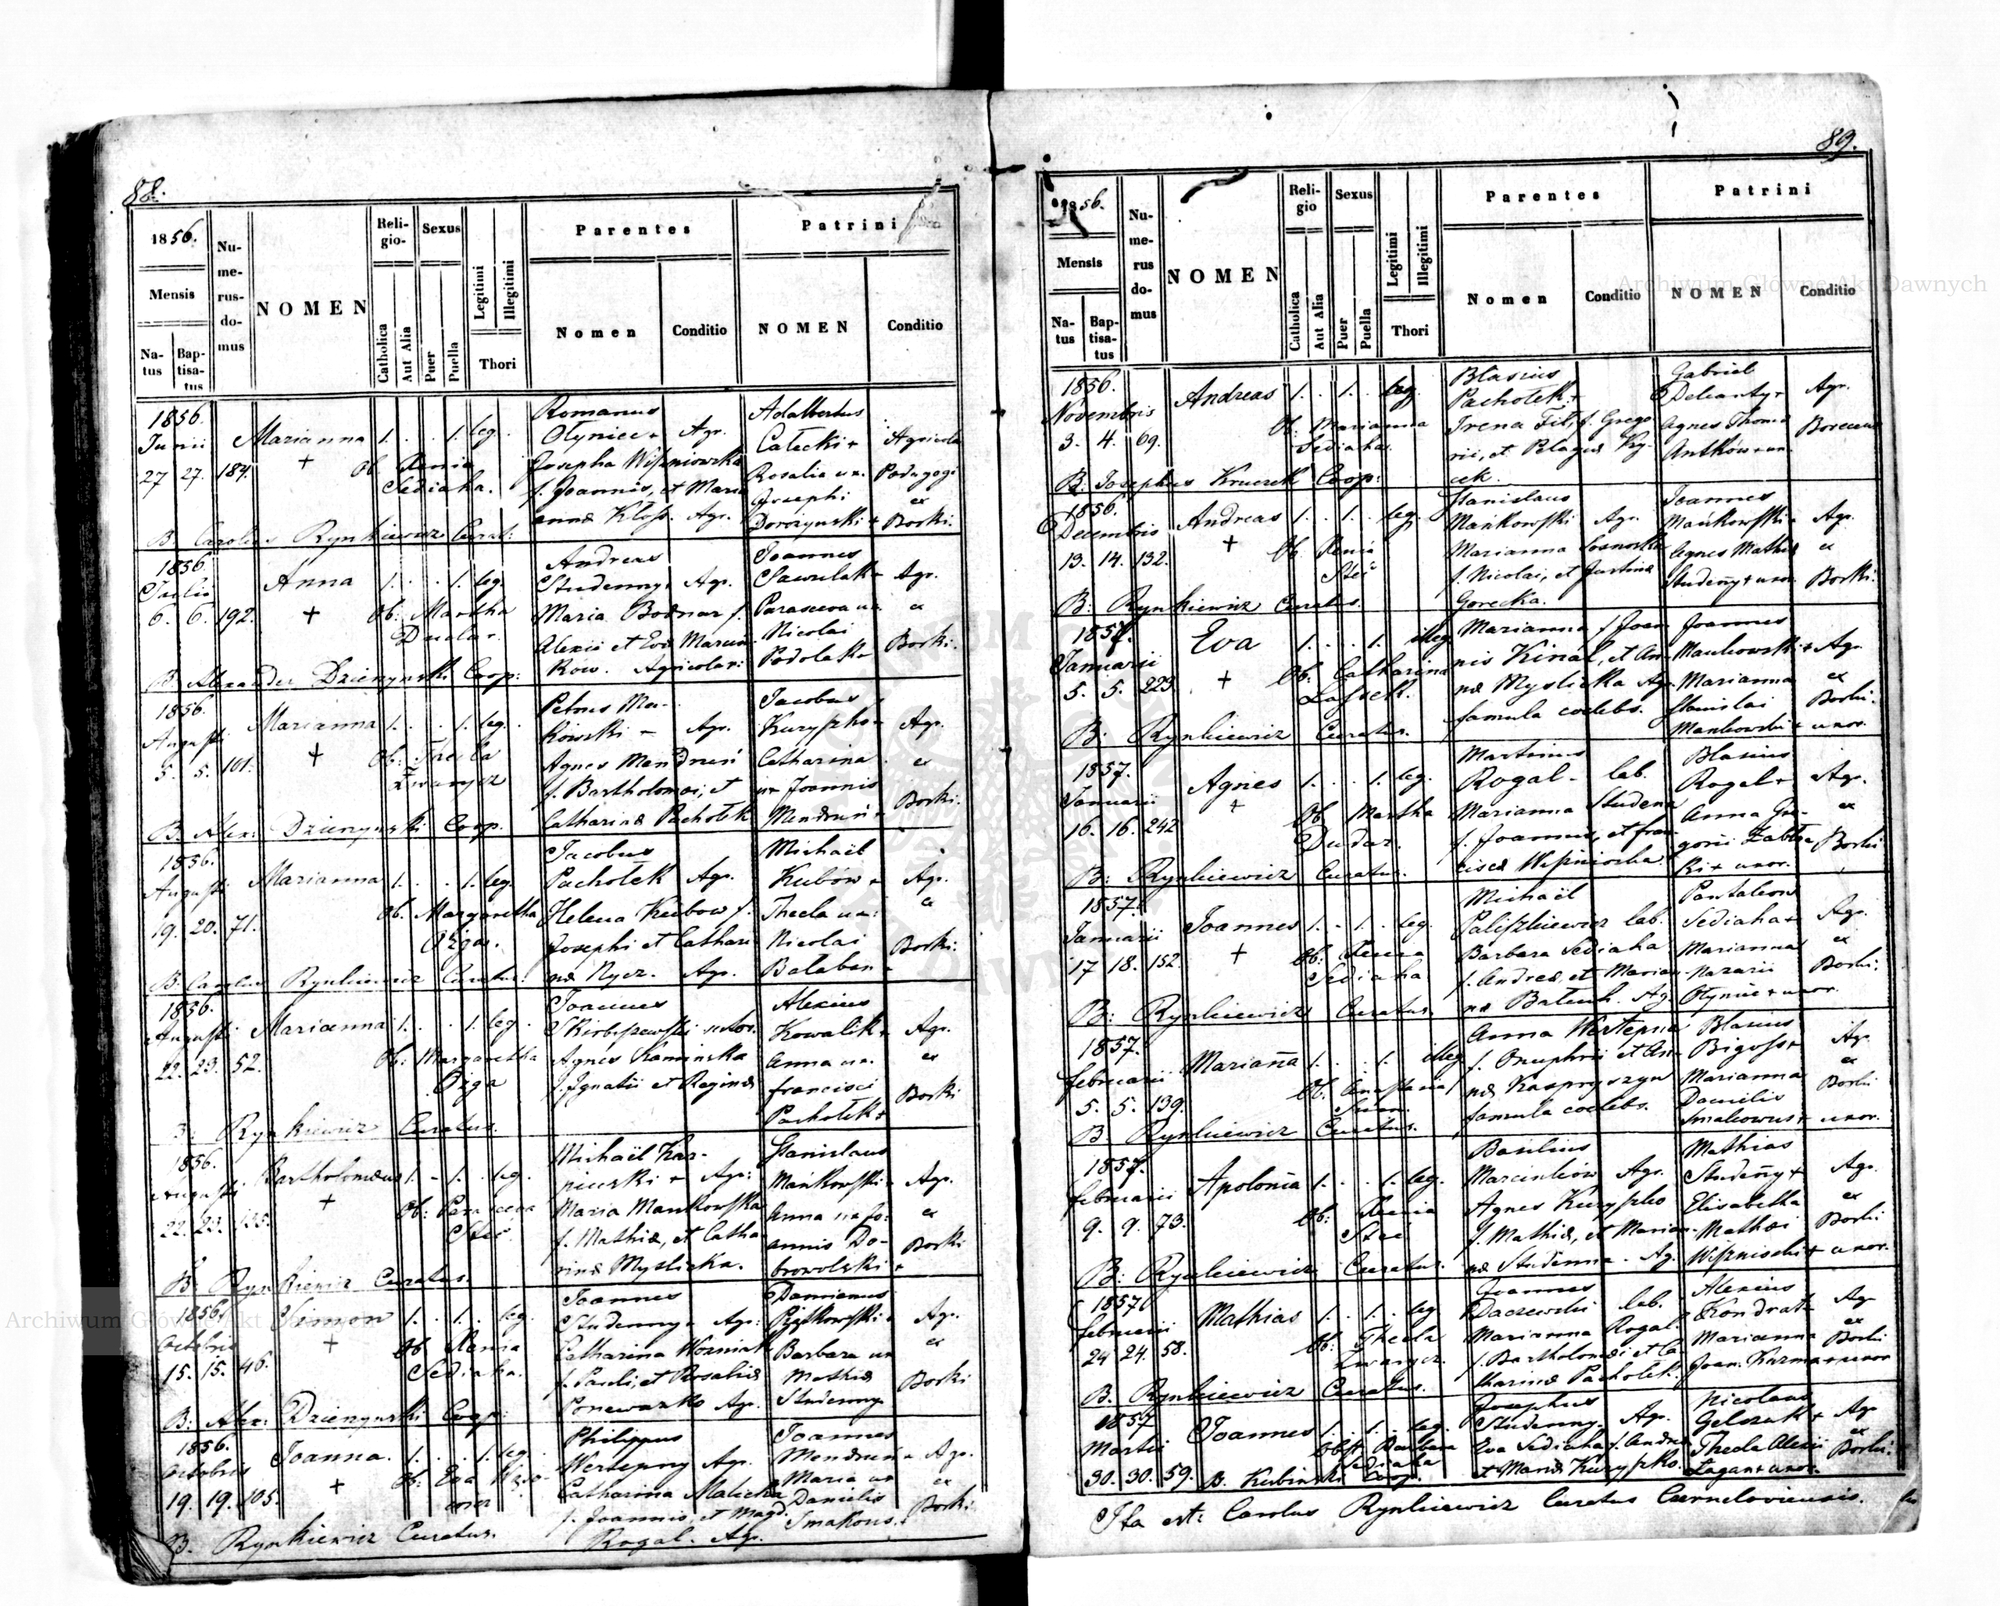 88.
1856.
Mensis
Na-
tus
Bap-
tisa-
tus
Nu-
me-
rus-
do-
mus
NOMEN
Reli-
gio-
Catholica
Aut Alia
Sexus
Puer
Puella
Legitimi
Illegitimi
Thori
Parentes
Nomen
Conditio
Patrini
NOMEN
Conditio
1856.
Junii
27 27. 184.
Marianna 1. . . 1. leg.
+
Ob. Xenia
Sediaha.
Romanus
Ołyniec + Agr.
Josepha Wiśniowska
f. Joannis, et Mari
annæ Kloss. Agr.
Adalbertus
Całecki +
Rosalia ux.
Josephi
Dorożynski +
Agricola
Podugogi
ex
Borki.
B. Carolus Rynkiewicz Curat:
1856.
Julii
6. 6. 192.
Anna 1. . . 1. leg.
+
Ob: Martha
Dudar.
Andreas
Studenny, Agr.
Maria Bodnar f.
Alexii et Evæ Marcin
ków. Agricolar:
Joannes
Sawrulak +
Parasceva ux.
Nicolai
Podolak +
Agr.
ex
Borki.
B. Alexander Dzienynski Coop:
1856.
Augusti
5. 5. 101.
Marianna 1. . . 1. leg.
+
Ob: Thecla
Zwarycz
Petrus Ma-
kowski - Agr.
Agnes Mendruń
f. Bartholomæi, et
Catharinæ Pachołek
Jacobus
Kurypho +
Catharina
ux Joannis
Mendruń +
Agr.
ex
Borki.
B. Alex: Dzienynski Coop.
1856.
Augusti
19. 20. 71.
Marianna 1. . . 1. leg.
Ob. Margaretha
Ożga.
Jacobus
Pachołek Agr.
Helena Kubow f.
Josephi et Cathari
næ Nycz. Agr.
Michaël
Kubów +
Thecla ux:
Nicolai
Balaban -
Agr.
ex
Borki.
B. Carolus Rynkiewicz Curatus.
1856.
Augusti
22. 23. 52.
Marianna 1. . . 1. leg.
Ob: Margaretha
Ożga
Joannes
Agnes Kaminska
f. Ignatii et Reginæ
Alexius
Kowalik +
Anna ux.
Francisci
Pachołek +
Agr.
ex
Borki
B. Rynkiewicz Curatus.
1856.
Augusti
22. 23. 135.
Bartholomæus 1. - 1. . leg.
+
Ob: Parasceva
Steć
Michaël Kar-
piński + Agr:
Maria Mankowska
f. Mathiæ, et Catha
rinæ Myslicka.
Stanislaus
Mańkowski +
Anna ux Jo-
annis Do-
browolski +
Agr.
ex
Borki
B. Rynkiewicz Curatus.
1856.
Octobris
15. 15. 46.
Simeon 1. . 1. . leg.
+
Ob. Xenia
Sediaha.
Joannes
Studenny + Agr:
Catharina Woźniak
f. Pauli, et Rosaliæ
Ponewazko Agr.
Damianus
Rytkowski +
Barbara ux
Mathiæ
Studenny
Agr.
ex
Borki
B: Alex: Dzienynski Coop:
1856.
Octobris
19. 19. 105.
Joanna. 1. . . 1. leg.
+
Ob. Eva
Philippus
Wertepny Agr.
Catharina Malicka
f. Joannis, et Magd.
Rogal. Agr.
Joannes
Mendruń +
Maria ux
Danielis
Smakous.
Agr.
ex
Borki:
B. Rynkiewicz Curatus.
89.
1856.
Mensis
Na-
tus
Bap-
tisa-
tus
Nu-
me-
rus
do-
mus
NOMEN
Reli-
gio
Catholica
Aut Alia
Sexus
Puer
Puella
Legitimi
Illegitimi
Thori
Parentes
Nomen
Conditio
Patrini
NOMEN
Conditio
1856.
Novembris
3. 4. 69.
Andreas 1. . 1. . leg.
Ob: Marianna
Sediaha.
Blasius
Pachołek +
Irena Fil, f. Grego
rii, et Pelagiæ Ky-
cek.
Gabriel
Delianty +
Agnes Thomæ
Antków + ux.
Agr.
Borecens
B: Josephus Kruczek Coop:
1856.
Decembris
13. 14. 132.
Andreas 1. . 1. . leg.
+
Ob Xenia
Steć
Stanislaus
Mańkowski Agr.
Marianna Sosnoska
f. Nicolai, et Justinæ
Gorecka.
Joannes
Mańkowski +
Agnes Mathiæ
Studeñy + uxor.
Agr.
ex
Borki:
B: Rynkiewicz Curatus.
1857.
Januarii
5. 5. 223
Eva 1. . . 1. illeg
+
Ob: Catharina
Lassek.
Marianna f. Joan
nis Kinal, et An
næ Myslicka Agr.
famula coelebs.
Joannes
Mankowski +
Marianna
Stanislai
Mankowski + uxor.
Agr.
ex
Borki.
B: Rynkiewicz Curatus.
1857.
Januarii
16. 16. 242
Agnes 1. . . 1. leg.
+
Ob. Martha
Dudar.
Martinus
Rogal - lab.
Marianna Studena
f. Joannis, et Fran
ciscæ Wiśniocha.
Blasius
Rogal +
Anna Gre-
gorii Zabłoc
ki + uxor.
Agr.
ex
Borki
B: Rynkiewicz Curatus.
1857.
Januarii
17 18. 152.
Joannes 1. . 1. . leg.
+
Ob: Xenia
Sediaha
Michaël
Paliszkiewicz lab.
Barbara Sediaha
f. Andreæ, et Marian
næ Batiuch. Ag.
Pantaleon
Sediaha +
Marianna
Nazarii
Ołyniec + uxor.
Agr.
ex
Borki.
B: Rynkiewicz Curatus.
1857.
Februarii
5. 5. 139.
Mariaña 1. . . 1. illeg
Ob. Anastasia
Anna Wertepna
f. Onuphrii et An-
næ Kaspryszyn
famula coelebs.
Blasius
Bigoss +
Marianna
Danielis
Smakowus + uxor.
Agr.
ex
Borki
B. Rynkiewicz Curatus.
1857.
Februarii
9. 9. 73.
Apolonia 1. . . 1. leg.
Ob: Xenia
Steć
Basilius
Marcinków Agr.
Agnes Kurypho
f. Mathiæ, et Marian-
næ Studenna. Ag.
Mathias
Studeñy +
Elisabetha
Mathæi
Wiśnioski + uxor.
Agr.
ex
Borki
B: Rynkiewicz Curatus.
1857.
Februarii
24 24. 58.
Mathias 1. . 1. . leg
Ob: Thecla
Zwarycz.
Joannes
Daczewski lab.
Marianna Rogal
f. Bartholomæi et Ca
tharinæ Pachołek.
Alexius
Kondrat +
Marianna
Joan. Kuzma + uxor
Agr
ex
Borki
B. Rynkiewicz Curatus.
1857
Martii
30. 30. 59.
Joannes 1. . 1. . leg.
Obst. Barbara
Sediaha
Josephus
Studenny. Agr.
Eva Sediaha f. Andreæ
et Mariæ Kurypko.
Nicolaus
Gelczuk +
Thecla Alexii
Łagan + uxor.
Agr
ex
Borki.
B. Kubinski Coop.
Ita est: Carolus Rynkiewicz Curatus Curneloviensis.
Archiwum Główne Akt Dawnych
Archiwum Główne Akt Dawnych